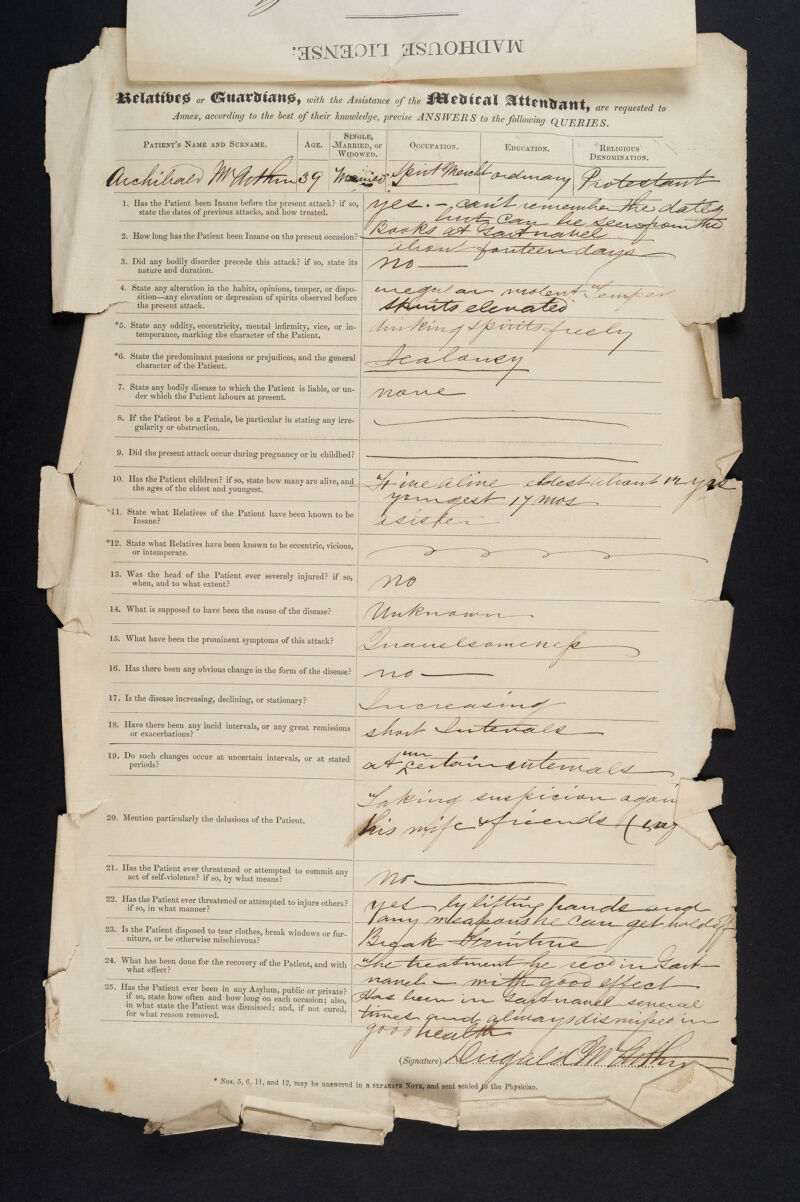 MADHOUSE LICENSE.
Relatives or Guardians, with the Assistance of the Medical Attendant, are requested to
Annex, according to the best of their knowledge, precise ANSWERS to the following QUERIES.
PATIENT'S NAME AND SURNAME.
AGE.
SINGLE, MARRIED, or WIDOWED.
OCCUPATION.
EDUCATION.
RELIGIOUS DENOMINATION.
Archibald McArthur 39 Married Spirit Mercht ordinary Protestant
1. Has the Patient been Insane before the present attack? if so,
state the dates of previous attacks, and how treated.
yes. – can't remember the dates
but can be seen from the
Books at Gartnavel
2. How long has the Patient been Insane on the present occasion?
about fourteen days
3. Did any bodily disorder precede this attack? if so, state its
nature and duration.
no
4. State any alteration in the habits, opinions, temper, or dispo-
sition—any elevation or depression of spirits observed before
the present attack.
irregular violent Temper
spirits elevated
*5. State any oddity, eccentricity, mental infirmity, vice, or in-
temperance, marking the character of the Patient.
drinking spirits freely
*6. State the predominant passions or prejudices, and the general
character of the Patient.
Jealousy
7. State any bodily disease to which the Patient is liable, or un-
der which the Patient labours at present.
none
8. If the Patient be a Female, be particular in stating any irre-
gularity or obstruction.
9. Did the present attack occur during pregnancy or in childbed?
10. Has the Patient children? if so, state how many are alive, and
the ages of the eldest and youngest.
Five alive eldest about 12 yrs
youngest 17 mos
*11. State what Relatives of the Patient have been known to be
Insane?
a sister
*12. State what Relatives have been known to be eccentric, vicious,
or intemperate.
13. Was the head of the Patient ever severely injured? if so,
when, and to what extent?
no
14. What is supposed to have been the cause of the disease?
Unknown
15. What have been the prominent symptoms of this attack?
Quarrelsomeness
16. Has there been any obvious change in the form of the disease?
no
17. Is the disease increasing, declining, or stationary?
Increasing
18. Have there been any lucid intervals, or any great remissions
or exacerbations?
short Intervals
19. Do such changes occur at uncertain intervals, or at stated
periods?
at uncertain intervals
20. Mention particularly the delusions of the Patient.
Taking suspicion again
his wife & friends
21. Has the Patient ever threatened or attempted to commit any
act of self-violence? if so, by what means?
no
22. Has the Patient ever threatened or attempted to injure others?
if so, in what manner?
yes by lifting hands and
any weapons he can get hold of
23. Is the Patient disposed to tear clothes, break windows or fur-
niture, or be otherwise mischievous?
Break Furniture
24. What has been done for the recovery of the Patient, and with
what effect?
The treatment he recd in Gart-
navel – with good effect
25. Has the Patient ever been in any Asylum, public or private?
if so, state how often and how long on each occasion; also,
in what state the Patient was dismissed; and, if not cured,
for what reason removed.
Has been in Gartnavel several
times and always dismissed in
good health
(Signature) Dugald McArthur
* Nos. 5, 6, 11, and 12, may be answered in a SEPARATE NOTE, and sent sealed to the Physician.